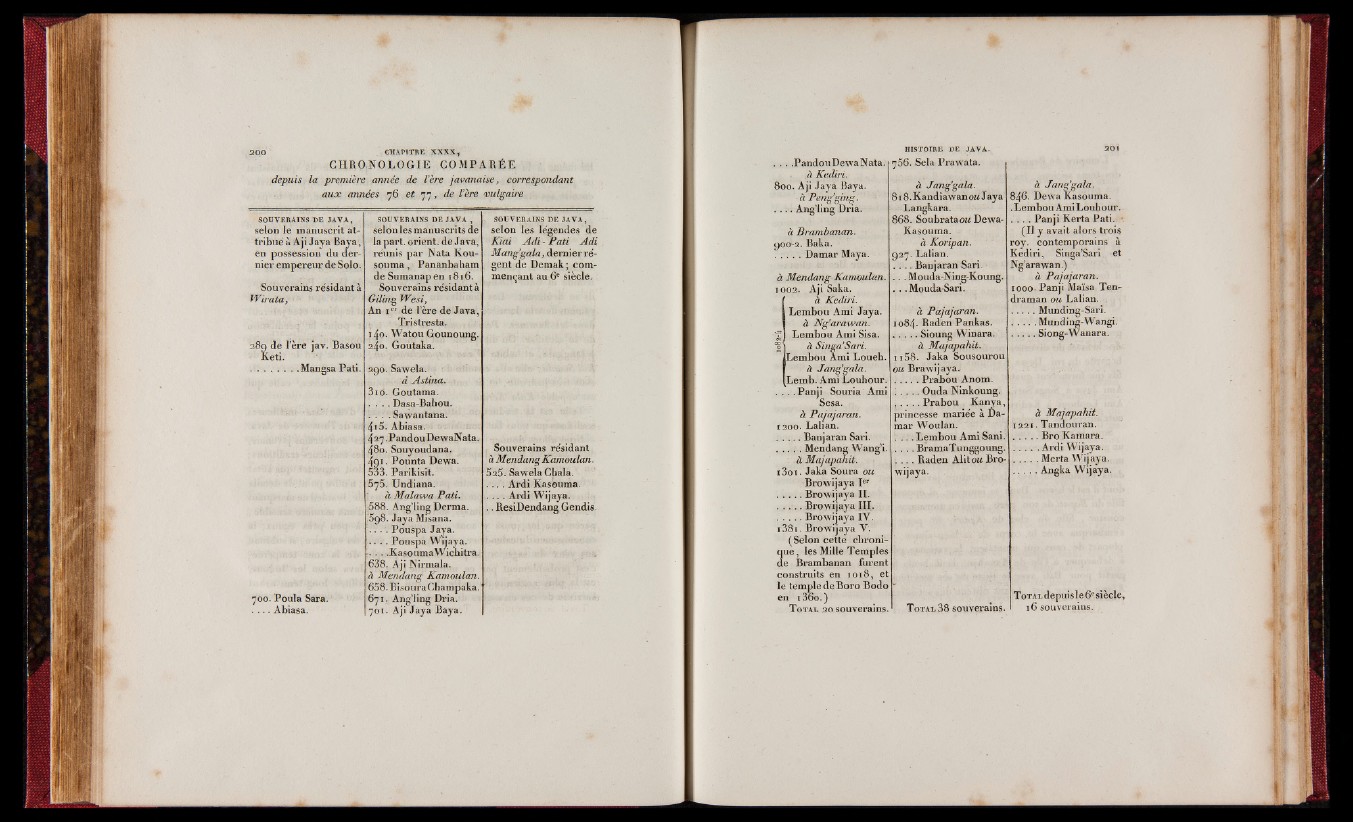 200
CHAPITRE XXXX,
CHRONOLOGIE COMPARÉE
depuis la première année de l'ère javanaise, correspondant
aux années 76 et 77, de l'ère vulgaire
SOUVERAINS DE JAVA,
selon le manuscrit at-
tribué à Aji Jaya Baya,
en possession du der-
nier empereur de Solo.
Souverains résidant à
Wirata,
289 de l'ère jav. Basou
Keti.
. . . . . . . . Mangsa Pati.
700. Poula Sara.
. . . . Abiasa.
SOUVERAINS DE JAVA,
selon les manuscrits de
la part. orient. de Java,
réunis par Nata Kou-
souma, Pananbaham
de Sumanap en 1816.
Souverains résidant à
Giling Wesi,
An 1er de l'ère de Java,
Tristresta.
140. Watou Gounoung.
240. Goutaka.
290. Sawela.
à Astina.
310. Goutama.
. . . . Dasa-Bahou.
. . . . Sawantana.
415. Abiasa.
427. Pandou DewaNata.
480. Souyoudana.
491. Pounta Dewa.
533. Parikisit.
575. Undiana.
à Malawa Pati.
588. Ang'ling Derma.
598. Jaya Misana.
. . . . Pouspa Jaya.
. . . . Pouspa Wijaya.
. . . . Kasouma Wichitra.
638. Aji Nirmala.
à Mendang Kamoulan.
658. Bisoura Champaka.
671. Ang'ling Dria.
701. Aji Jaya Baya.
SOUVERAINS DE JAVA,
selon les légendes de
Kiai Adi-Pati Adi
Mang'gala, dernier ré-
gent de Demak; com-
mençant au 6e siècle.
Souverains résidant
à Mendang Kamoulan.
525. Sawela Chala.
. . . . Ardi Kasouma.
. . . . Ardi Wijaya.
. . Resi Dendang Gendis.
HISTOIRE DE JAVA.
201
. . . . Pandou Dewa Nata.
à Kediri.
800. Aji Jaya Baya.
à Peng'ging.
. . . . Ang'ling Dria.
à Brambanan.
900-2. Baka.
. . . . . Damar Maya.
à Mendang-Kamoulan.
1002. Aji Saka.
à Kediri.
Lembou Ami Jaya.
à Ng'arawan.
Lembou Ami Sisa.
à Singa'Sari.
Lembou Ami Loueh.
à Jang'gala.
Lemb. Ami Louhour.
1082-4
. . . . Panji Souria Ami
Sesa.
à Pajajaran.
1200. Lalian.
. . . . . Banjaran Sari.
. . . . . Mendang Wang'i.
à Majapahit.
1301. Jaka Soura ou
Browijaya Ier
. . . . . Browijaya II.
. . . . . Browijaya III.
. . . . . Browijaya IV.
1381. Browijaya V.
(Selon cette chroni-
que, les Mille Temples
de Brambanan furent
construits en 1018, et
le temple de Boro Bodo
en 1360.)
TOTAL 20 souverains.
756. Sela Prawata.
à Jang'gala.
818. Kandiawan ou Jaya
Langkara.
868. Soubrata ou Dewa-
Kasouma.
à Koripan.
927. Lalian.
. . . . Banjaran Sari.
. . . Mouda-Ning-Koung.
. . . Mouda-Sari.
à Pajajaran.
1084. Raden Pankas.
. . . . . Sioung Winara.
à Majapahit.
1158. Jaka Sousourou
ou Brawijaya.
. . . . . Prabou Anom.
. . . . . Ouda Ninkoung.
. . . . . Prabou Kanya,
princesse mariée à Da-
mar Woulan.
. . . . Lembou Ami Sani.
. . . . Brama Tunggoung.
. . . . Raden Alit ou Bro-
wijaya.
TOTAL 38 souverains.
à Jang'gala.
846. Dewa Kasouma.
. Lembou Ami Louhour.
. . . . Panji Kerta Pati.
(Il y avait alors trois
roy. contemporains à
Kediri, Singa'Sari et
Ng'arawan.)
à Pajajaran.
1000. Panji Maïsa Ten-
draman ou Lalian.
. . . . . Munding-Sari.
. . . . . Munding-Wangi.
. . . . . Siong-Wanara.
à Majapahit.
1221. Tandouran.
. . . . . Bro Kamara.
. . . . . Ardi Wijaya.
. . . . . Merta Wijaya.
. . . . . Angka Wijaya.
TOTAL depuis le 6e siècle,
16 souverains.